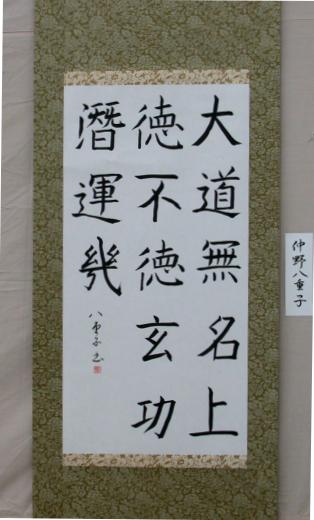 大道無名上
徳不徳玄功
潛運幾
八重子書
仲野八重子